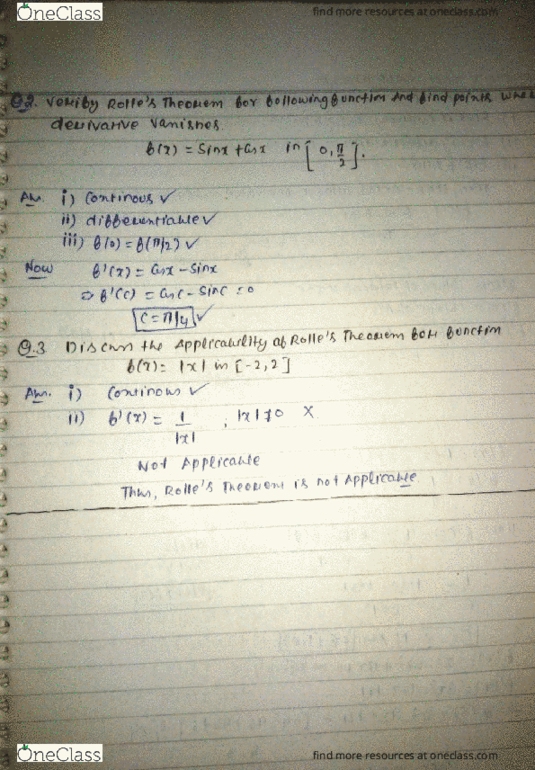 OneClass
find more resources at oneclass.com
Q2. Verify Rolle's Theorem for following function and find points where
derivative vanishes.
f(x) = Sinx + Cosx in [0, π/2].
Ans. i) Continous ✓
ii) differentiable ✓
iii) f(0) = f(π/2) ✓
Now f'(x) = Cosx - Sinx
⇒ f'(c) = Cosc - Sinc = 0
c = π/4 ✓
Q.3 Discuss the Applicability of Rolle's Theorem for function
f(x) = |x| in [-2,2]
Ans. i) Continous ✓
ii) f'(x) = 1/|x| ; |x| ≠ 0 X
Not Applicable
Thus, Rolle's Theorem is not Applicable
OneClass
find more resources at oneclass.com